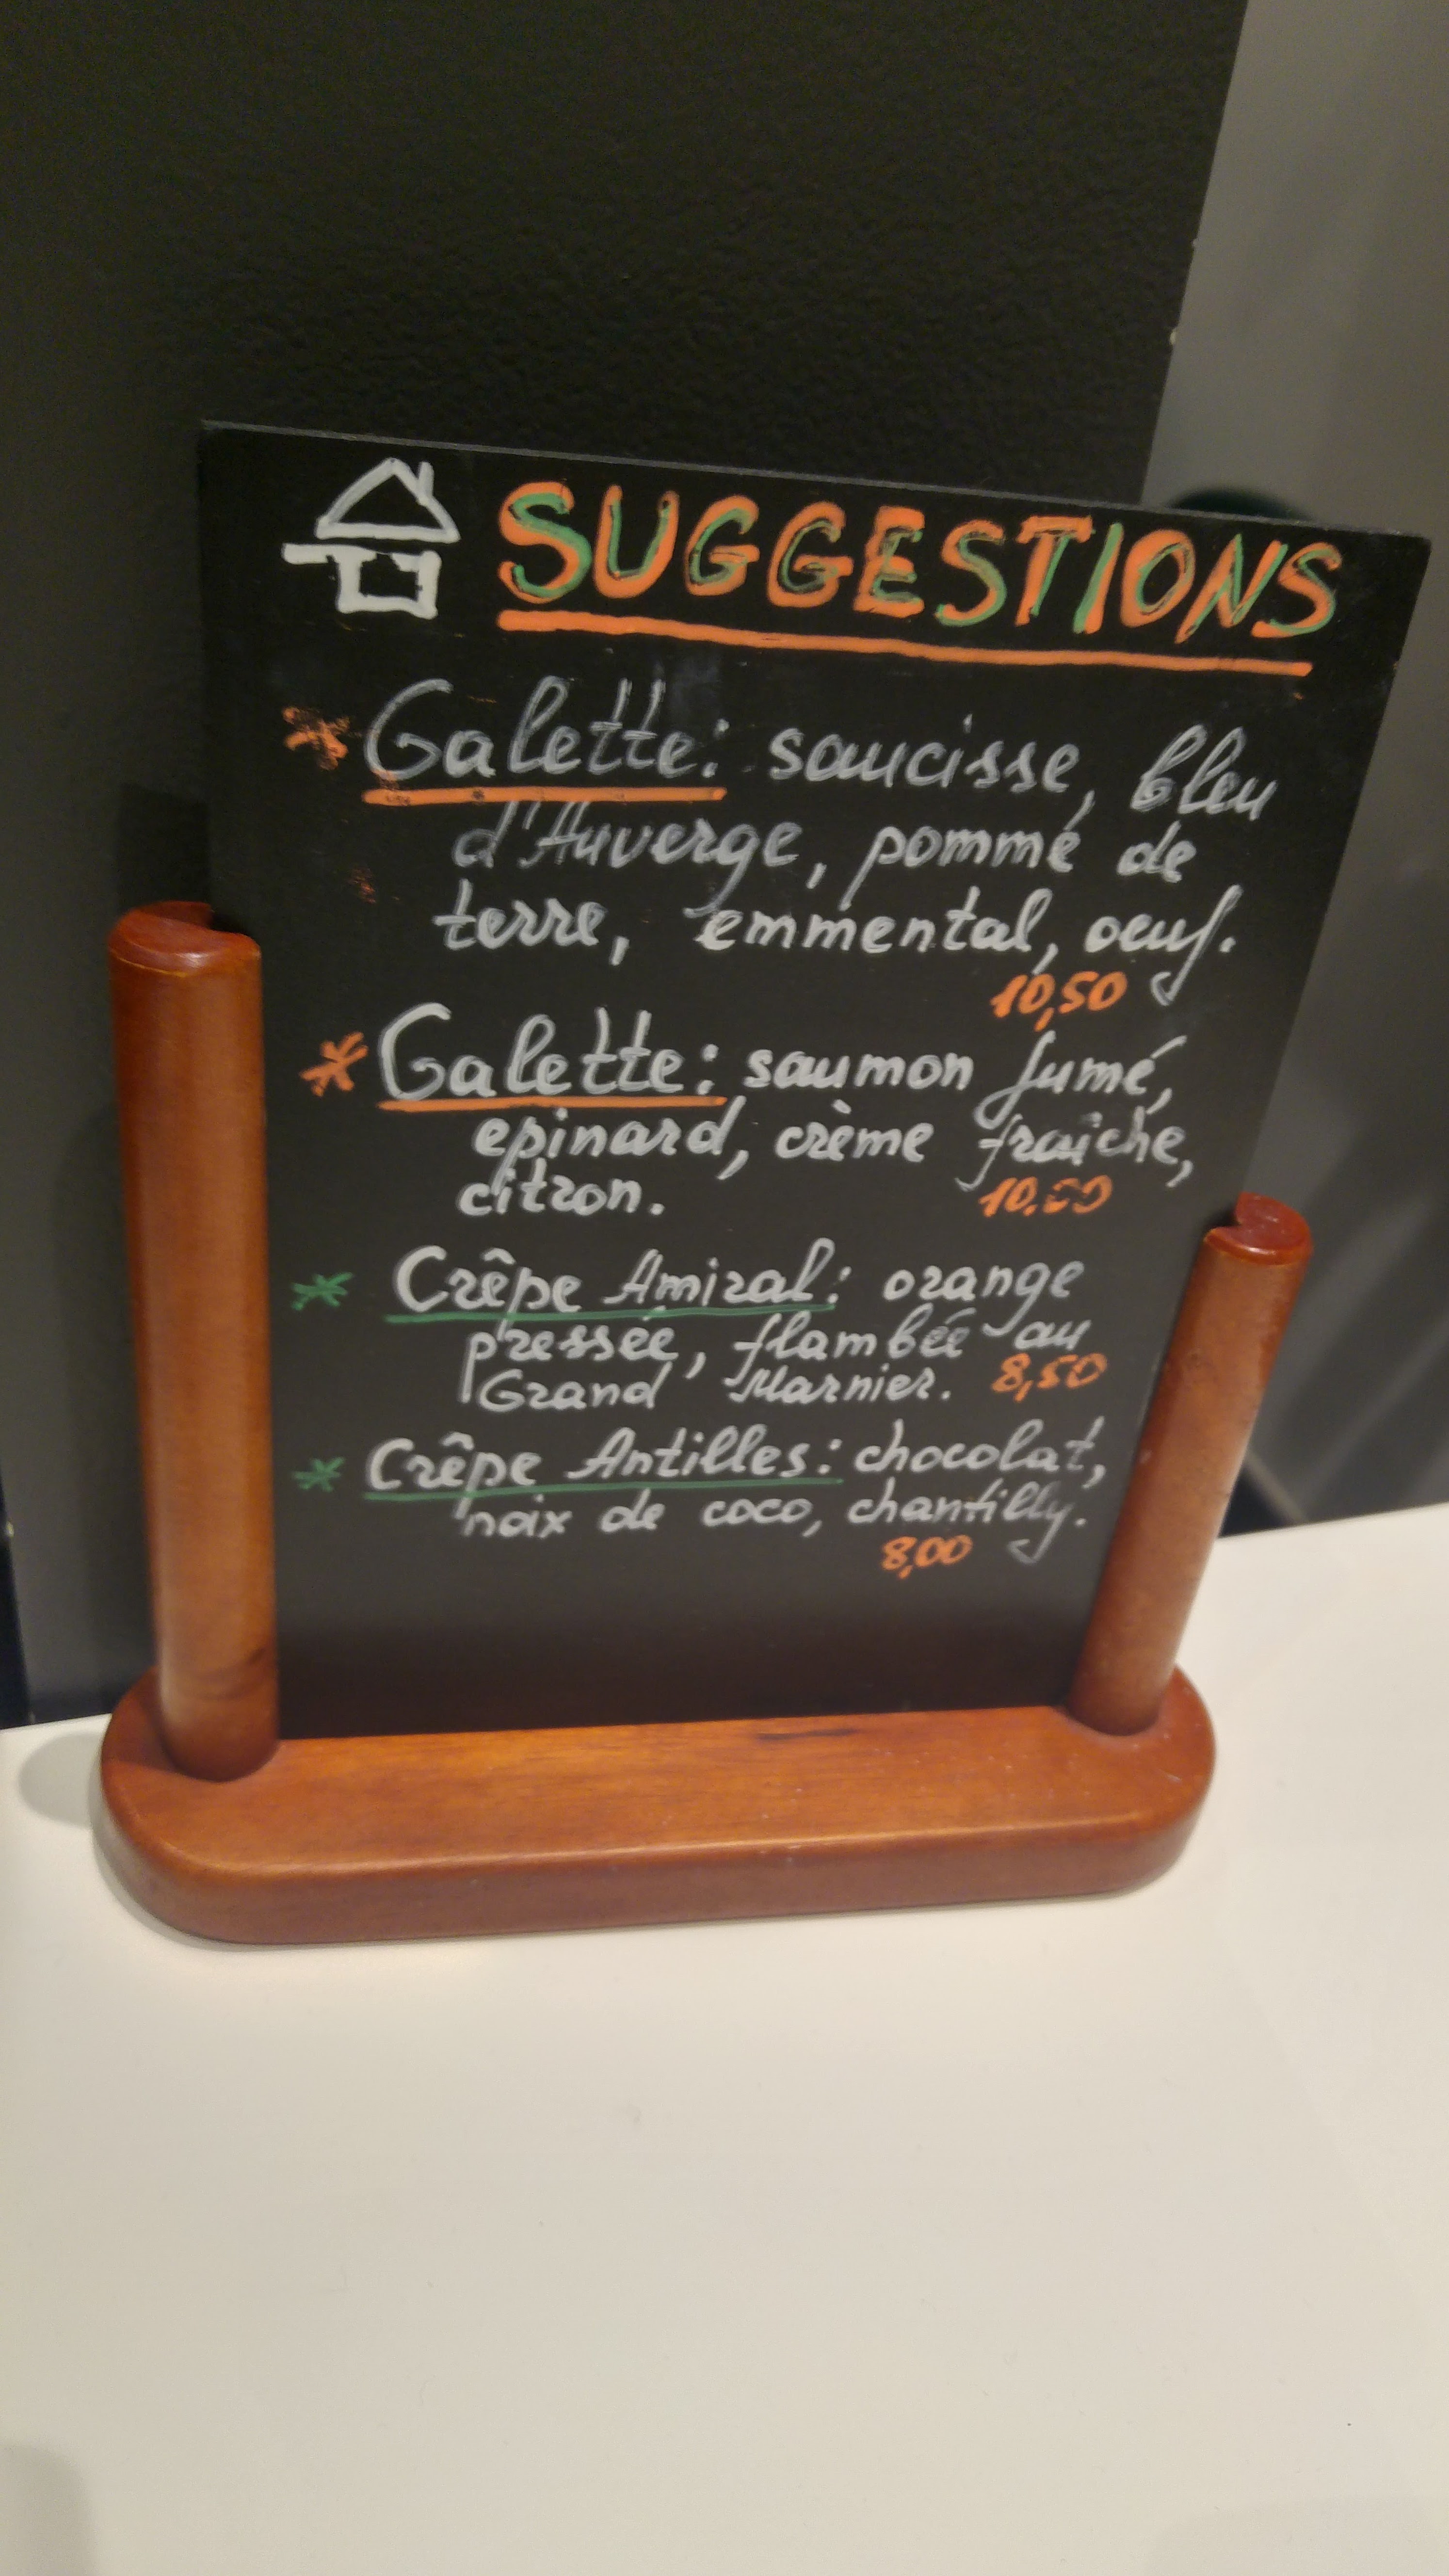 SUGGESTIONS
* Galette: saucisse, bleu
d'Auverge, pomme de
terre, emmental, oeuf.
10,50
* Galette: saumon fumé,
epinard, crème fraîche,
citron. 10.00
* Crêpe Amiral: orange
pressée, flambée au
Grand Marnier. 8,50
* Crêpe Antilles: chocolat,
noix de coco, chantilly.
8,00